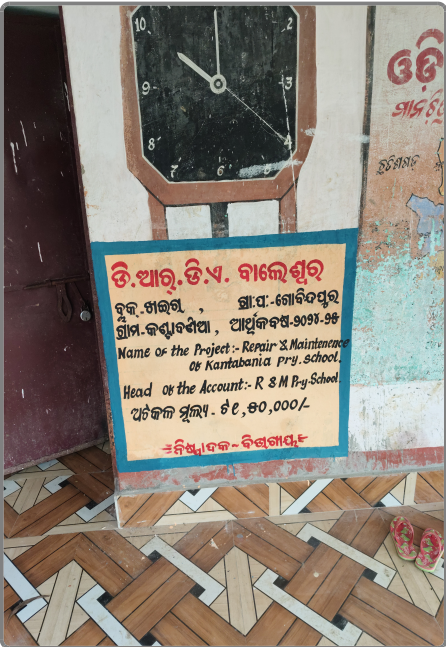 10
2
9
3
8
4
7
6
ଓଡ଼ି
ମାନଚିତ୍ର
ଛତିଶଗଡ଼
ଡି.ଆର୍.ଡି.ଏ. ବାଲେଶ୍ୱର
ବ୍ଲକ୍-ଖଇରା , ଗ୍ରା.ପଂ-ଗୋବିନ୍ଦପୁର
ଗ୍ରାମ-କଣ୍ଟାବଣିଆ , ଆର୍ଥିକବର୍ଷ-୨୦୨୪-୨୫
Name of the Project:- Repair & Maintenence
of Kantabania Pry. School.
Head of the Account:- R & M Pry-School.
ଅଟକଳ ମୂଲ୍ୟ - ଟ୧,୫୦,୦୦୦/-
ନିଷ୍ପାଦକ - ବିଭାଗୀୟ